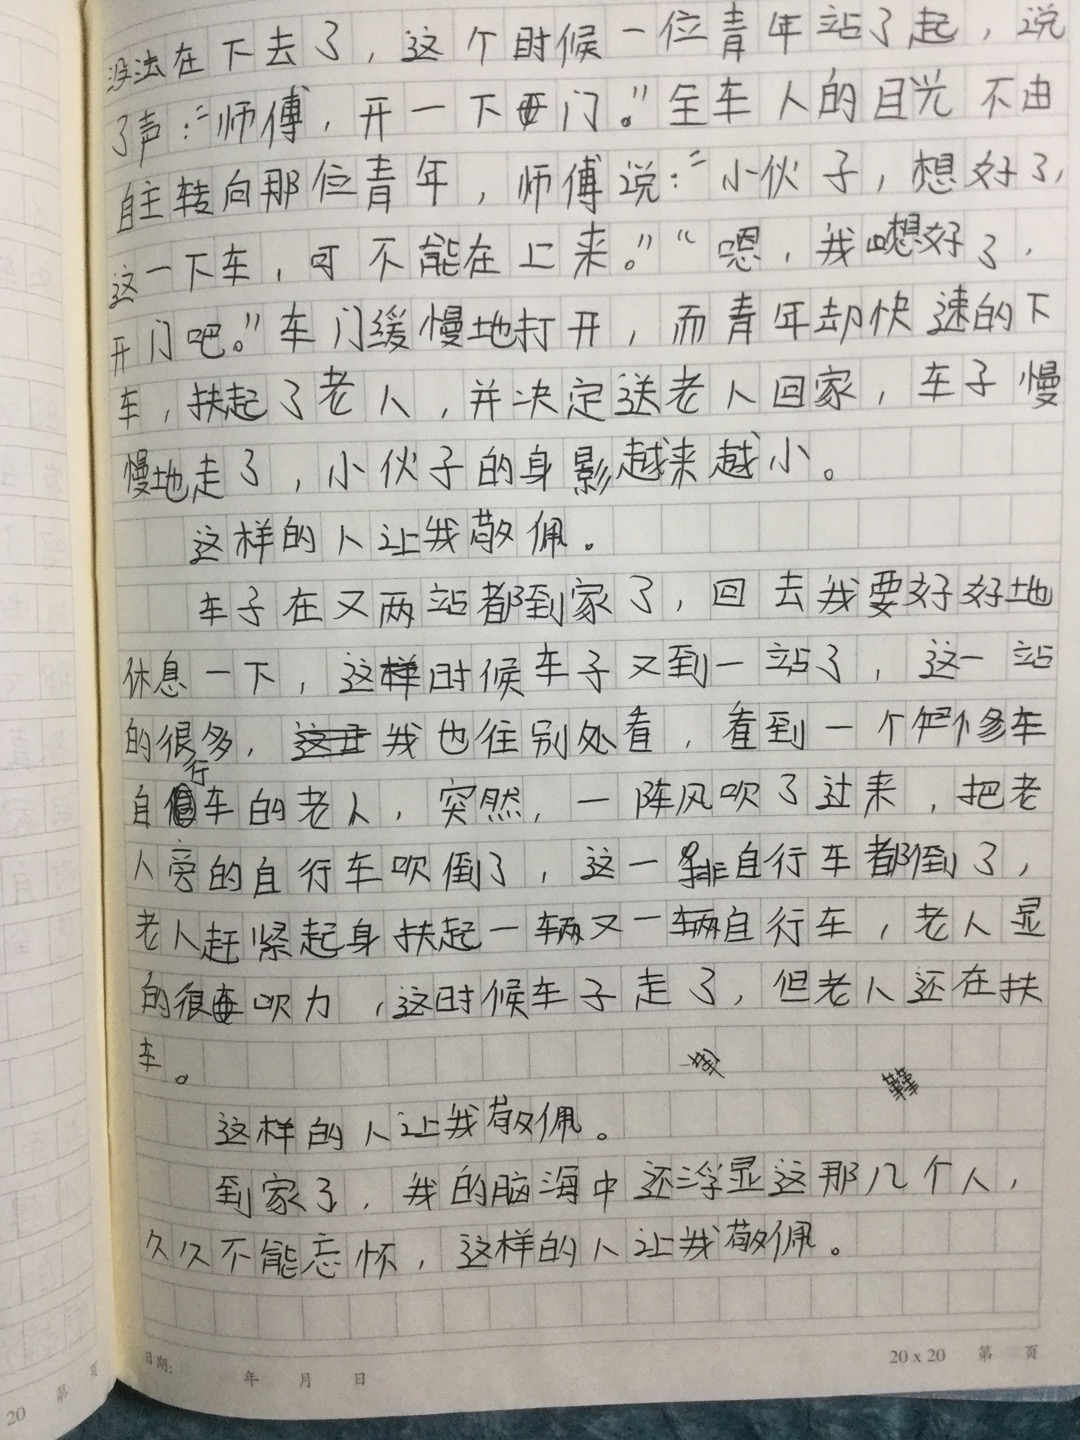 没法在下去了，这个时候一位青年站了起，说
了声：“师傅，开一下门。”全车人的目光不由
自主转向那位青年，师傅说：“小伙子，想好了，
这一下车，可不能在上来。”“嗯，我想好了，
开门吧。”车门缓慢地打开，而青年却快速的下
车，扶起了老人，并决定送老人回家，车子慢
慢地走了，小伙子的身影越来越小。
这样的人让我敬佩。
车子在又两站都到家了，回去我要好好地
休息一下，这时候车子又到一站了，这一站
的很多，我也往别处看，看到一个修车
自行车的老人，突然，一阵风吹了过来，把老
人旁的自行车吹倒了，这一排自行车都倒了，
老人赶紧起身扶起一辆又一辆自行车，老人显
的很吹力，这时候车子走了，但老人还在扶
车。
这样的人让我敬佩。
到家了，我的脑海中还浮显这那几个人，
久久不能忘怀，这样的人让我敬佩。
日期： 年 月 日
20 x 20 第 页
20 第 页